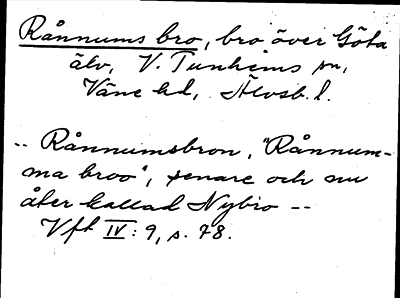 Rånnums bro, bro över Göta
älv, V. Tunhems sn,
Väne hd, Älvsb. l.
-- Rånnumsbron, "Rånnum-
ma broo", senare och nu
åter kallad Nybro --
Vft IV: 9, s. 78.